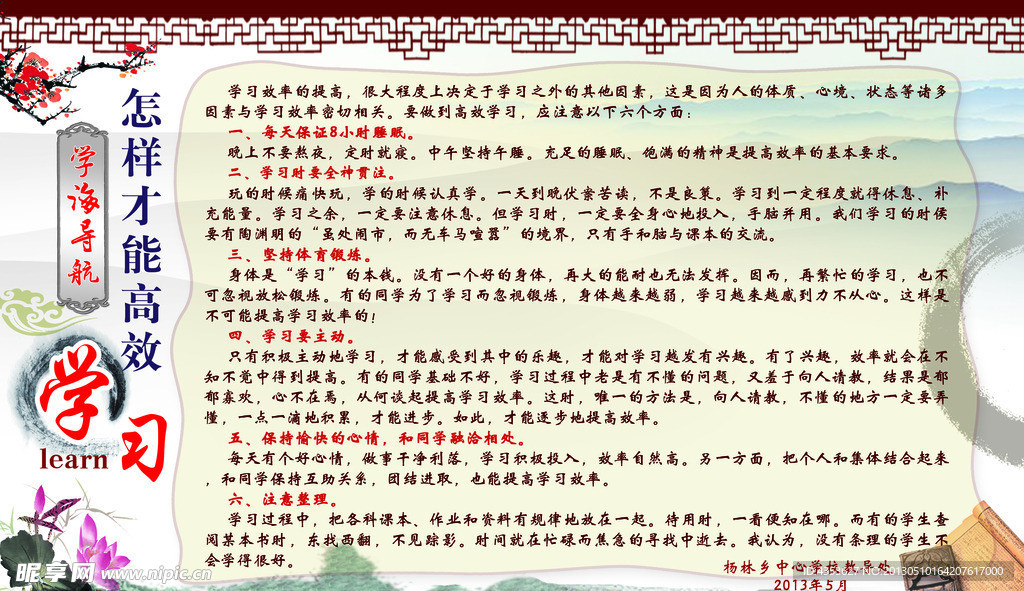 怎样才能高效
学海导航
学习
learn
学习效率的提高，很大程度上决定于学习之外的其他因素，这是因为人的体质、心境、状态等诸多
因素与学习效率密切相关。要做到高效学习，应注意以下六个方面：
一、每天保证8小时睡眠。
晚上不要熬夜，定时就寝。中午坚持午睡。充足的睡眠、饱满的精神是提高效率的基本要求。
二、学习时要全神贯注。
玩的时候痛快玩，学的时候认真学。一天到晚伏案苦读，不是良策。学习到一定程度就得休息、补
充能量。学习之余，一定要注意休息。但学习时，一定要全身心地投入，手脑并用。我们学习的时侯
要有陶渊明的“虽处闹市，而无车马喧嚣”的境界，只有手和脑与课本的交流。
三、坚持体育锻炼。
身体是“学习”的本钱。没有一个好的身体，再大的能耐也无法发挥。因而，再繁忙的学习，也不
可忽视放松锻炼。有的同学为了学习而忽视锻炼，身体越来越弱，学习越来越感到力不从心。这样是
不可能提高学习效率的！
四、学习要主动。
只有积极主动地学习，才能感受到其中的乐趣，才能对学习越发有兴趣。有了兴趣，效率就会在不
知不觉中得到提高。有的同学基础不好，学习过程中老是有不懂的问题，又羞于向人请教，结果是郁
郁寡欢，心不在焉，从何谈起提高学习效率。这时，唯一的方法是，向人请教，不懂的地方一定要弄
懂，一点一滴地积累，才能进步。如此，才能逐步地提高效率。
五、保持愉快的心情，和同学融洽相处。
每天有个好心情，做事干净利落，学习积极投入，效率自然高。另一方面，把个人和集体结合起来
，和同学保持互助关系，团结进取，也能提高学习效率。
六、注意整理。
学习过程中，把各科课本、作业和资料有规律地放在一起。待用时，一看便知在哪。而有的学生查
阅某本书时，东找西翻，不见踪影。时间就在忙碌而焦急的寻找中逝去。我认为，没有条理的学生不
会学得很好。
杨林乡中心学校教导处
2013年5月
昵享网 www.nipic.cn
NO:20130510164207617000